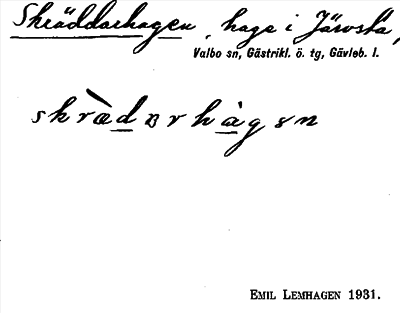 Skräddarhagen, hage i Järvsta,
Valbo sn, Gästrikl. ö. tg, Gävleb. l.
skr̀ædɐrhàgən
EMIL LEMHAGEN 1931.